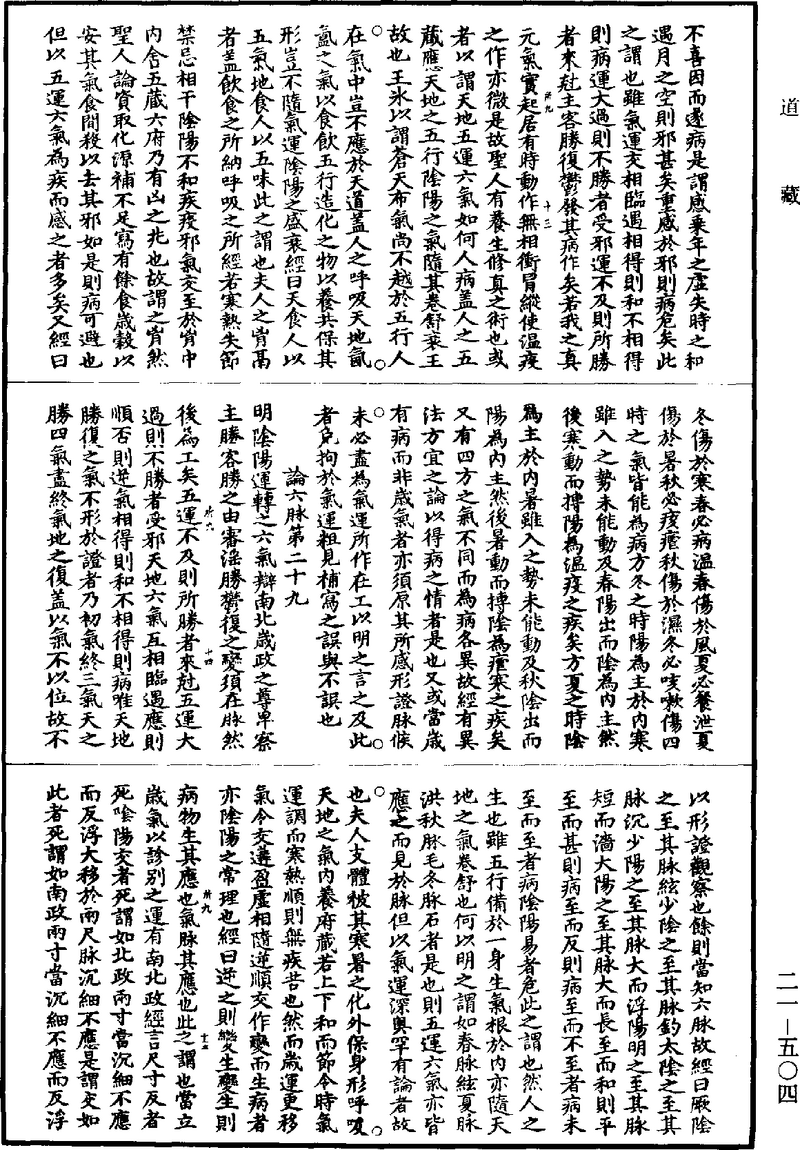 道藏
不喜因而遂病是謂感乘年之虛失時之和
遇月之空則邪甚矣重感於邪則病危矣此
之謂也雖氣運交相臨遇相得則和不相得
則病運大過則不勝者受邪運不及則所勝
者來尅主客勝復鬱發其病作矣若我之真
卅九 十三
元氣實起居有時動作無相衝冒縱使溫疫
之作亦微是故聖人有養生修真之術也或
者以謂天地五運六氣如何人病盖人之五
藏應天地之五行陰陽之氣隨其卷舒衰王
故也王氷以謂蒼天布氣尚不越於五行人
在氣中豈不應於天道盖人之呼吸天地氤
氳之氣以食飲五行造化之物以養共保其
形豈不隨氣運陰陽之盛衰經曰天食人以
五氣地食人以五味此之謂也夫人之胷鬲
者盖飲食之所納呼吸之所經若寒熱失節
禁忌相干陰陽不和疾疫邪氣交至於胷中
內舍五藏六府乃有凶之兆也故謂之胷然
聖人論資取化源補不足寫有餘食歲穀以
安其氣食間穀以去其邪如是則病可避也
但以五運六氣為疾而感之者多矣又經曰
冬傷於寒春必病溫春傷於風夏必飱泄夏
傷於暑秋必痎瘧秋傷於濕冬必咳嗽傷四
時之氣皆能為病方冬之時陽為主於內寒
雖入之勢未能動及春陽出而陰為內主然
後寒動而搏陽為溫疫之疾矣方夏之時陰
為主於內暑雖入之勢未能動及秋陰出而
陽為內主然後暑動而搏陰為瘧寒之疾矣
又有四方之氣不同而為病各異故經有異
法方宜之論以得病之情者是也又或當歲
有病而非歲氣者亦須原其所感形證脉候
未必盡為氣運所作在工以明之言之及此
者免拘於氣運粗見補寫之誤與不誤也
論六脉第二十九
明陰陽運轉之六氣辯南北歲政之尊卑察
主勝客勝之由審淫勝鬱復之變須在脉然
卅六 十四
後為工矣五運不及則所勝者來尅五運大
過則不勝者受邪天地六氣互相臨遇應則
順否則逆氣相得則和不相得則病唯天地
勝復之氣不形於證者乃初氣終三氣天之
勝四氣盡終氣地之復盖以氣不以位故不
以形證觀察也餘則當知六脉故經曰厥陰
之至其脉絃少陰之至其脉鈎太陰之至其
脉沉少陽之至其脉大而浮陽明之至其脉
短而濇大陽之至其脉大而長至而和則平
至而甚則病至而反則病至而不至者病未
至而至者病陰陽易者危此之謂也然人之
生也雖五行備於一身生氣根於內亦隨天
地之氣卷舒也何以明之謂如春脉絃夏脉
洪秋脉毛冬脉石者是也則五運六氣亦皆
應之而見於脉但以氣運深奧罕有論者故
也夫人支體被其寒暑之化外保身形呼吸
天地之氣內養府藏若上下和而節令時氣
運調而寒熱順則無疾苦也然而歲運更移
氣令交遘盈虛相隨逆順交作變而生病者
亦陰陽之常理也經曰逆之則變生變生則
卅九 十五
病物生其應也氣脉其應也此之謂也當立
歲氣以診別之運有南北政經言尺寸反者
死陰陽交者死謂如北政兩寸當沉細不應
而反浮大移於兩尺脉沉細不應是謂交如
此者死謂如南政兩寸當沉細不應而反浮
二一—五〇四